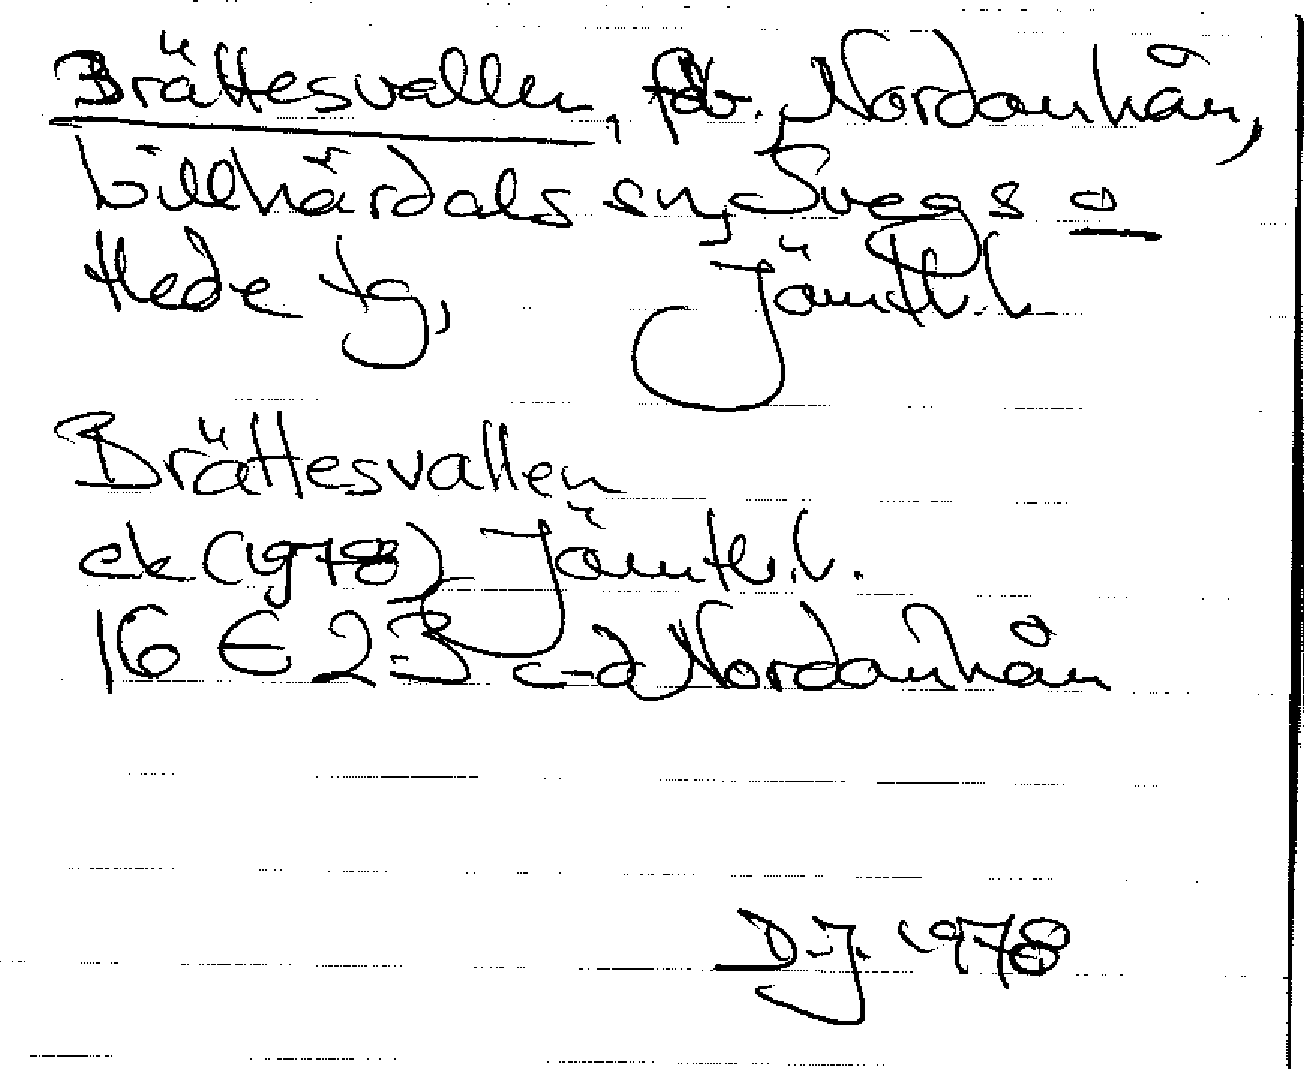 Brättesvallen, fäb. Nordanhån,
Lillhärdals sn, Svegs o
Hede tg, Jämtl. l.
Brättesvallen
ek (1978) Jämtl. l.
16 E 23 c-d Nordanhån
D.J. 1978